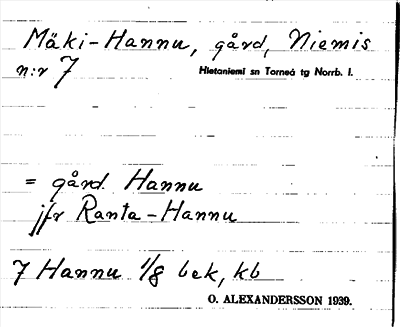 Mäki-Hannu, gård, Niemis
n:r 7
Hietaniemi sn Torneå tg Norrb. l.
= gård Hannu
jfr Ranta-Hannu
7 Hannu 1/8 bek, kb
O. ALEXANDERSSON 1939.